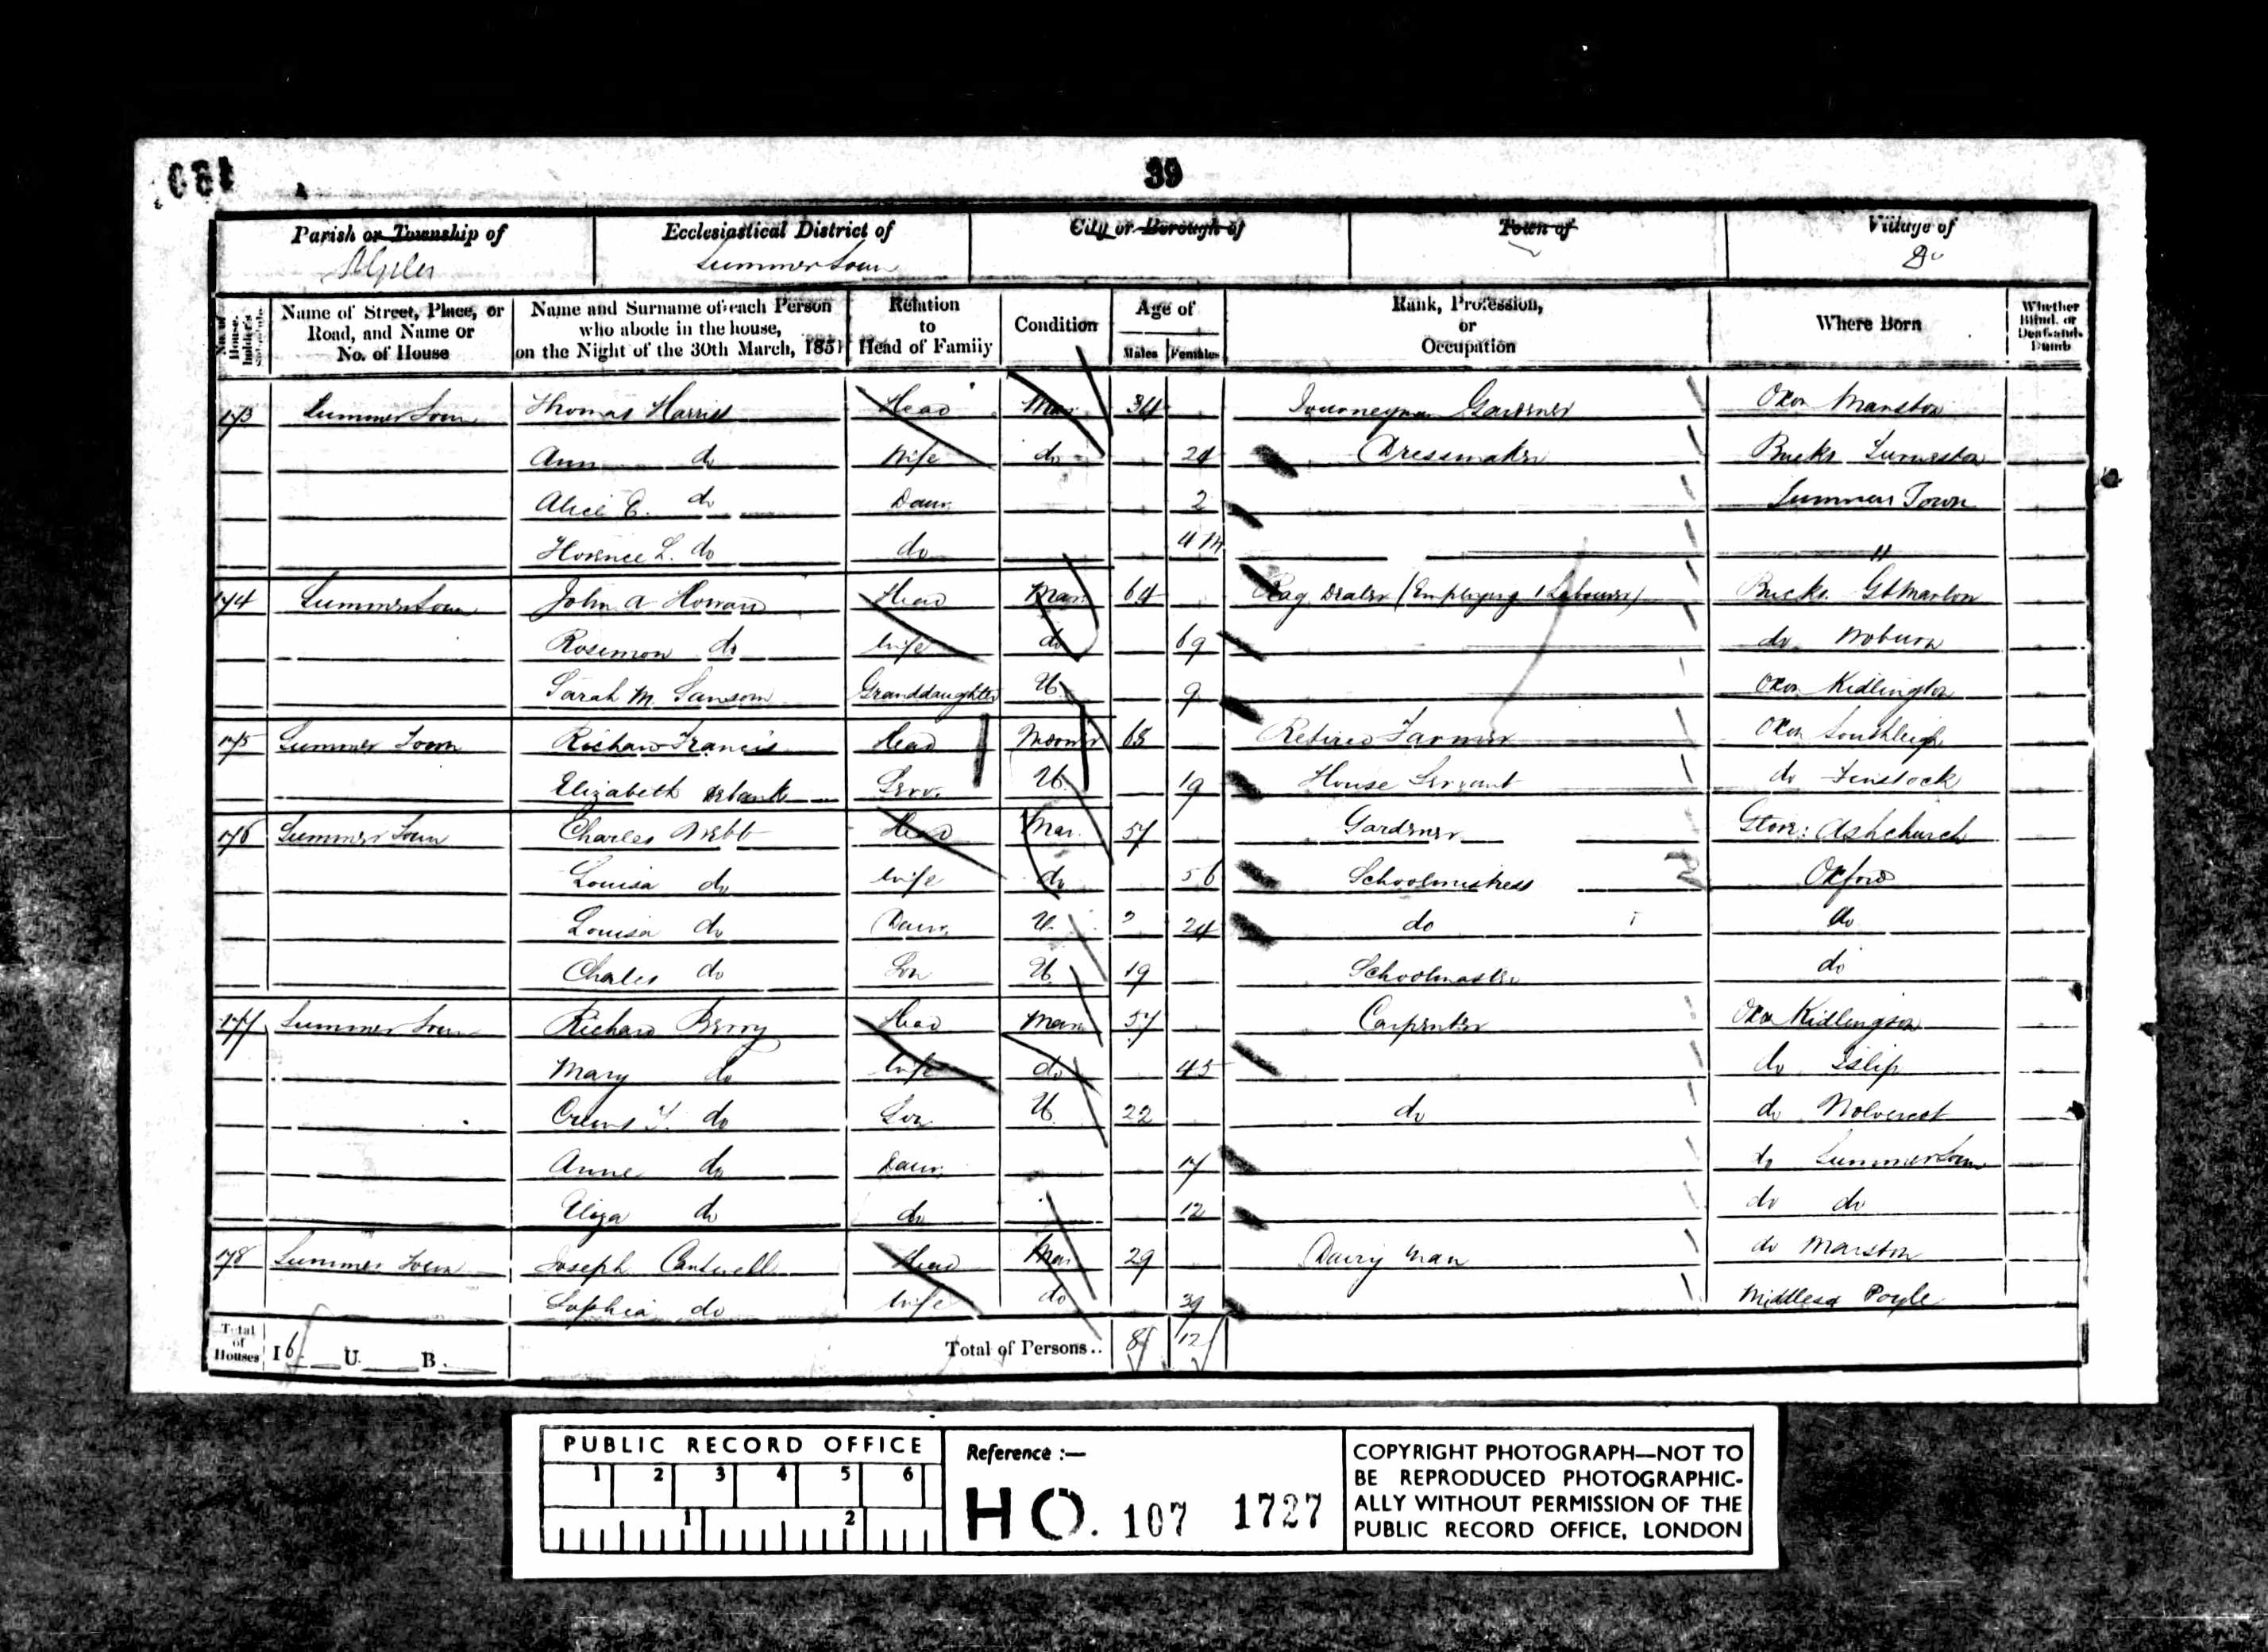 39
Parish or Township of
St Giles
Ecclesiastical District of
Summer Town
City or Borough of
Town of
Village of
Do
No. of House-holder's Schedule
Name of Street, Place, or Road, and Name or No. of House
Name and Surname of each Person who abode in the house, on the Night of the 30th March, 1851
Relation to Head of Family
Condition
Age of
Males Females
Rank, Profession, or Occupation
Where Born
Whether Blind, or Deaf-and-Dumb
173 Summer Town Thomas Harris Head Mar 34 Journeyman Gardener Oxon Marston
Ann do Wife do 24 Dressmaker Bucks
Alice E. do Daur. 2 Summer Town
Florence L. do do 4 M "
174 Summer Town John A Howard Head Mar 64 Rag Dealer (Employing 1 Labourer) Bucks Gt Marlow
Rosemon do Wife do 69 do Woburn
Sarah M. Sansom Granddaughter U. 9 Oxon Kidlington
175 Summer Town Richard Francis Head 68 Retired Farmer Oxon Southleigh
Elizabeth Serv. U. 19 House Servant do Finstock
176 Summer Town Charles Webb Head Mar. 57 Gardener Glou: Ashchurch
Louisa do Wife do 56 Schoolmistress Oxford
Louisa do Daur. U. 24 do do
Charles do Son U. 19 Schoolmaster do
177 Summer Town Richard Berry Head Mar 57 Carpenter Oxon Kidlington
Mary do Wife do 45 do Islip
do Son U. 22 do do Wolvercot
Anne do Daur. 17 do Summer Town
Eliza do do 12 do do
178 Summer Town Joseph Cantwell Head Mar 29 Dairy Man do Marston
Sophia do Wife do 39 Middlesex Poyle
Total of Houses I 6 U. B.
Total of Persons.. 8 12
PUBLIC RECORD OFFICE
1 2 3 4 5 6
1 2
Reference :—
HO. 107 1727
COPYRIGHT PHOTOGRAPH—NOT TO
BE REPRODUCED PHOTOGRAPHIC-
ALLY WITHOUT PERMISSION OF THE
PUBLIC RECORD OFFICE, LONDON